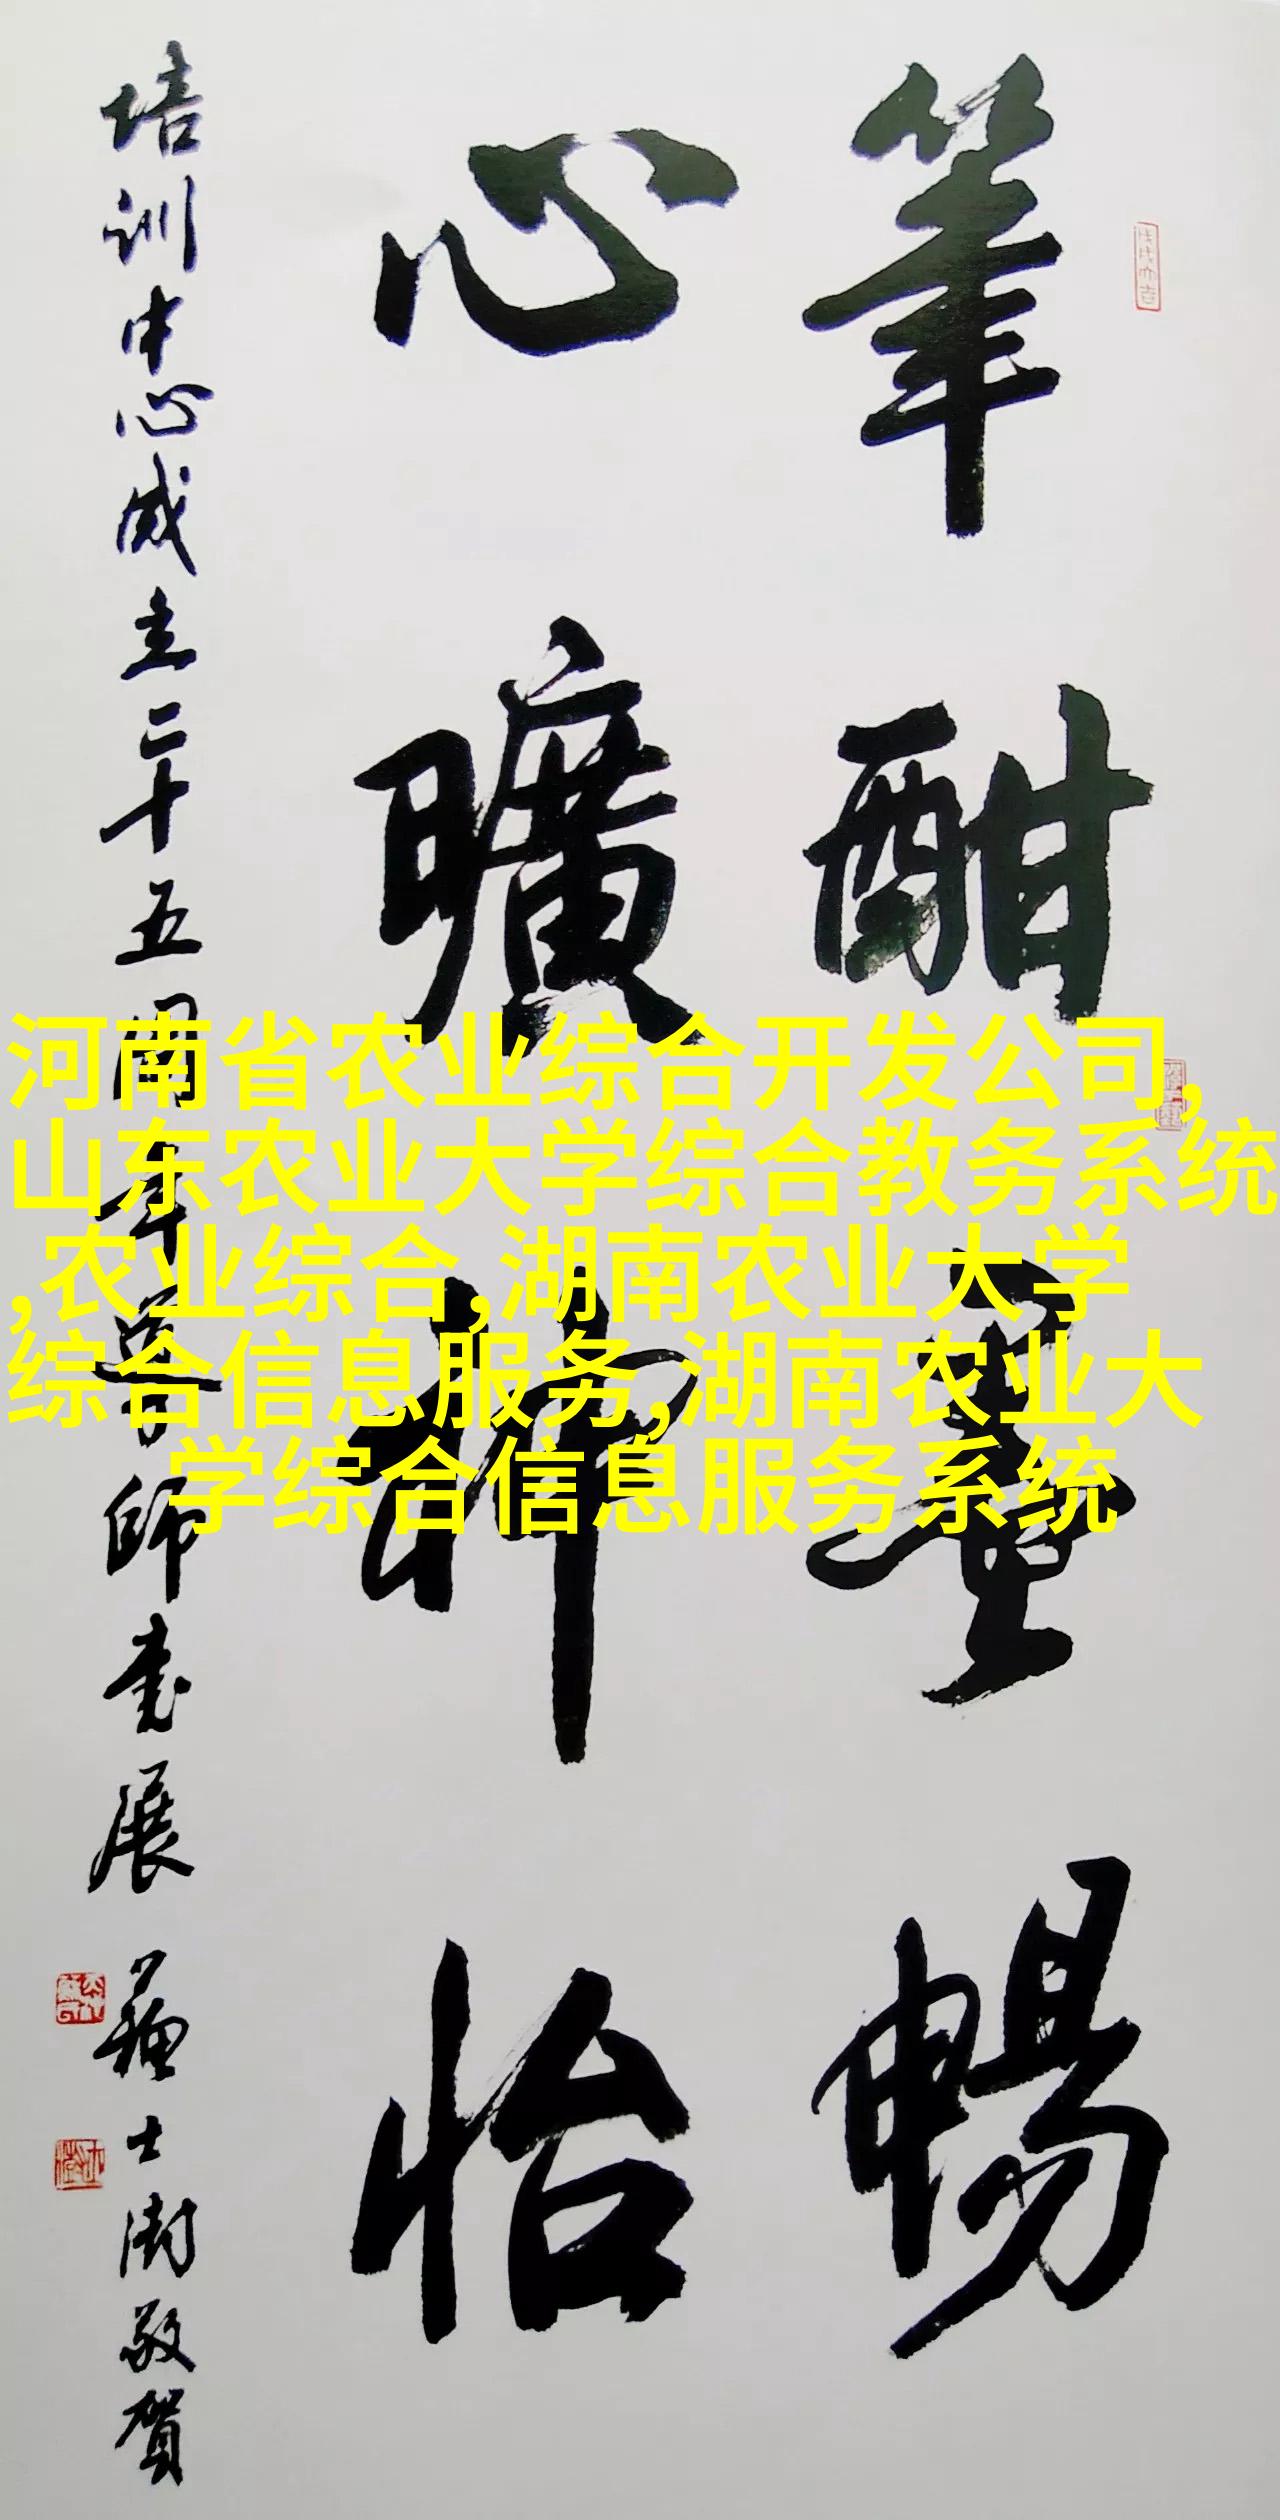 筆酣墨暢
心曠神怡
培训中心成立二十五周年導师书展 苏士澍敬贺
河南省农业综合开发公司,
山东农业大学综合教务系统
,农业综合,湖南农业大学
综合信息服务,湖南农业大
学综合信息服务系统